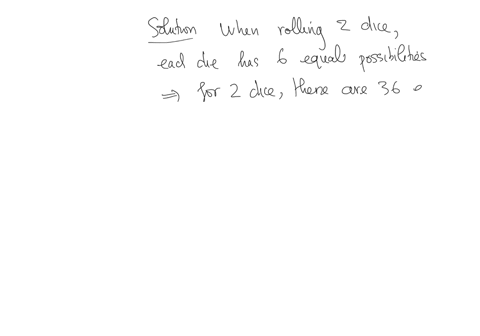 Solution When rolling 2 dice,
each die has 6 equal possibilities
⇒ for 2 dice, there are 36